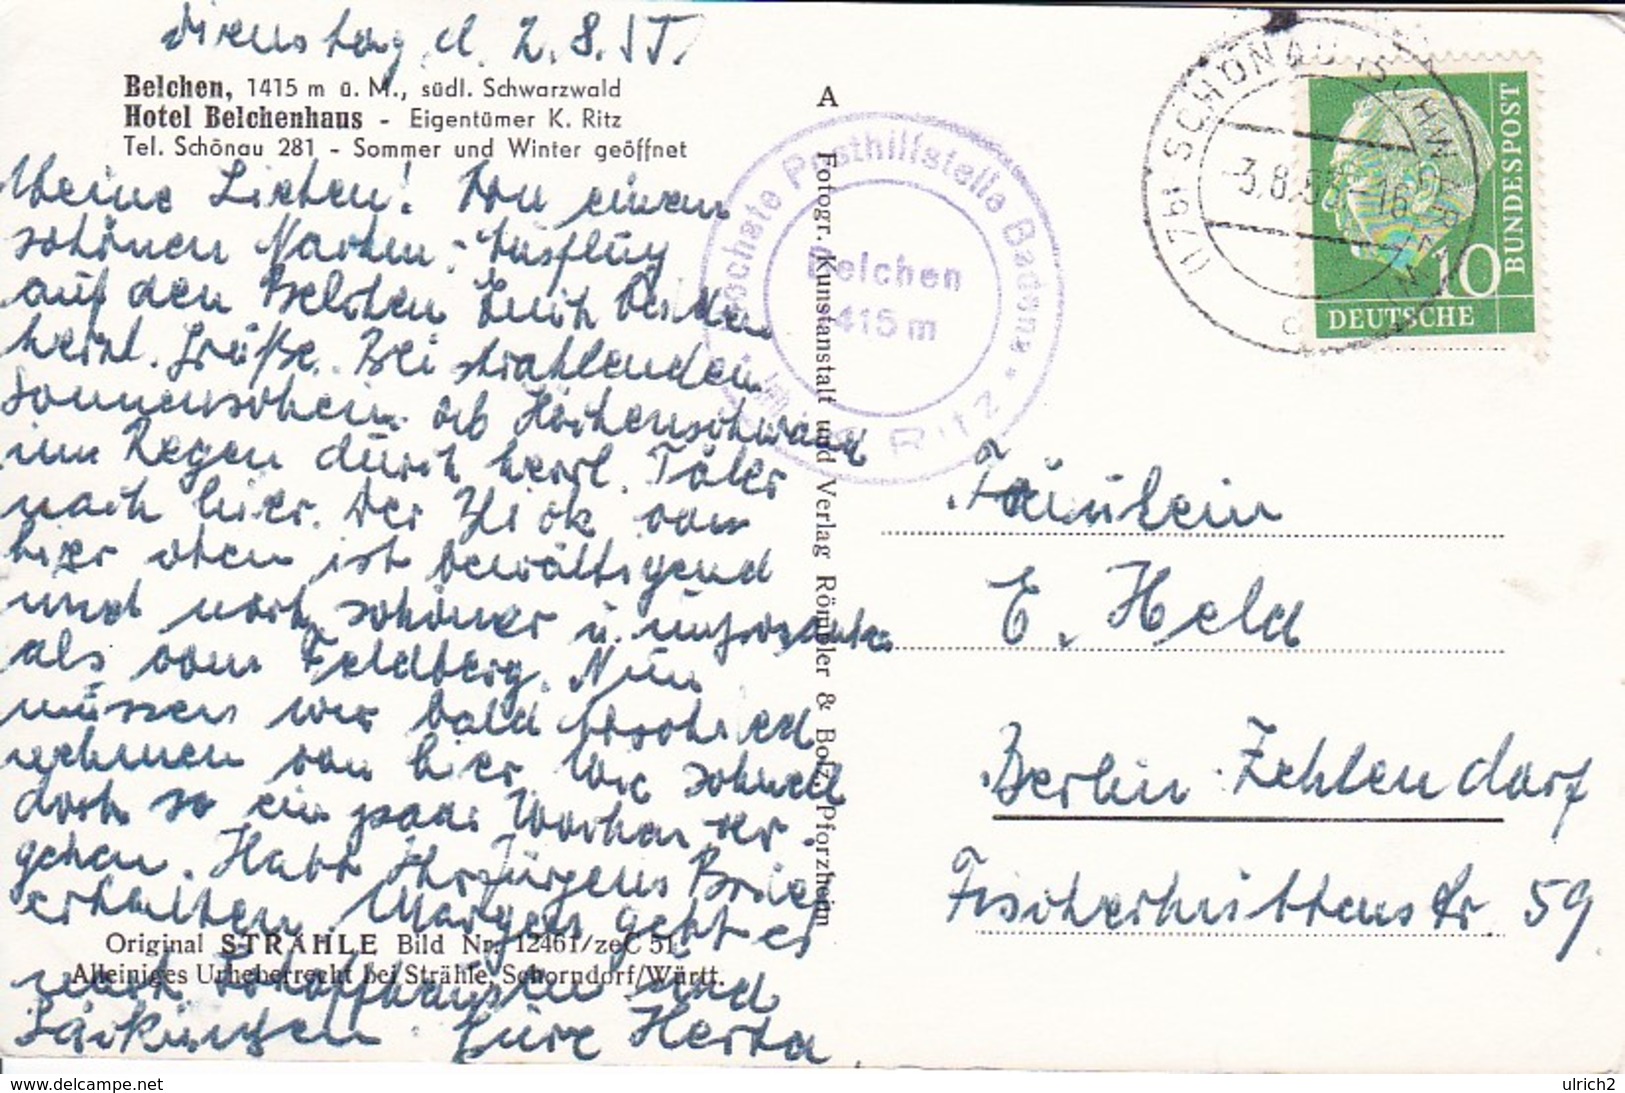 Dienstag d. 2.8.55.
Belchen, 1415 m ü. M., südl. Schwarzwald
Hotel Belchenhaus - Eigentümer K. Ritz
Tel. Schönau 281 - Sommer und Winter geöffnet
Meine Lieben! Von einem
schönen Nachm. Ausflug
auf den Belchen Euch beiden
herzl. Grüße. Bei strahlendem
Sonnenschein ab Höchenschwand
im Regen durch herrl. Täler
nach hier. Der Blick von
hier oben ist bewältigend
und noch schöner u. imposanter
als vom Feldberg. Nun
müssen wir bald Abschied
nehmen von hier. Wie schnell
doch so ein paar Wochen ver-
gehen. Habt Ihr Jürgens Brief
erhalten. Morgen geht es
nach Schaffhausen und
Säckingen. Eure Herta
Original STRÄHLE Bild Nr. 12461/zeC 51
Alleiniges Urheberrecht bei Strähle, Schorndorf/Württ.
A
Fotogr. Kunstanstalt und Verlag Römpler & Bolz, Pforzheim
Höchste Posthilfsstelle Badens
Belchen
1415 m
Ritz
(17b) SCHÖNAU (SCHWARZW)
-3.8.55-16
DEUTSCHE
BUNDESPOST
10
Fräulein
E. Held
Berlin-Zehlendorf
Fischerhüttenstr. 59
delcampe.net
ulrich2